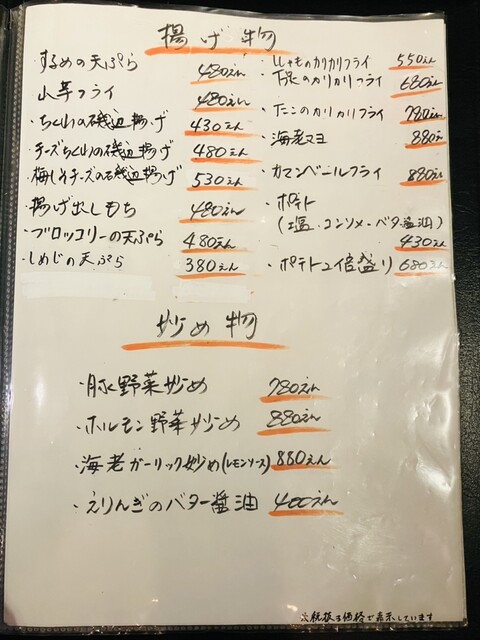 揚げ物
するめの天ぷら 480えん
山芋フライ 480えん
・ちくわの磯辺揚げ 430えん
・チーズちくわの磯辺揚げ 480えん
・梅しそチーズの磯辺揚げ 530えん
・揚げ出しもち 480えん
・ブロッコリーの天ぷら 480えん
・しめじの天ぷら 380えん
・ししゃものカリカリフライ 550えん
のカリカリフライ 680えん
・たこのカリカリフライ 780えん
・海老マヨ 880えん
・カマンベールフライ 880えん
・ポテト
(塩・コンソメ・バター醤油)
430えん
・ポテト2倍盛り 680えん
炒め物
・豚野菜炒め 780えん
・ホルモン野菜炒め 880えん
・海老ガーリック炒め(レモンソース) 880えん
・えりんぎのバター醤油 400えん
※税抜き価格で表示しています